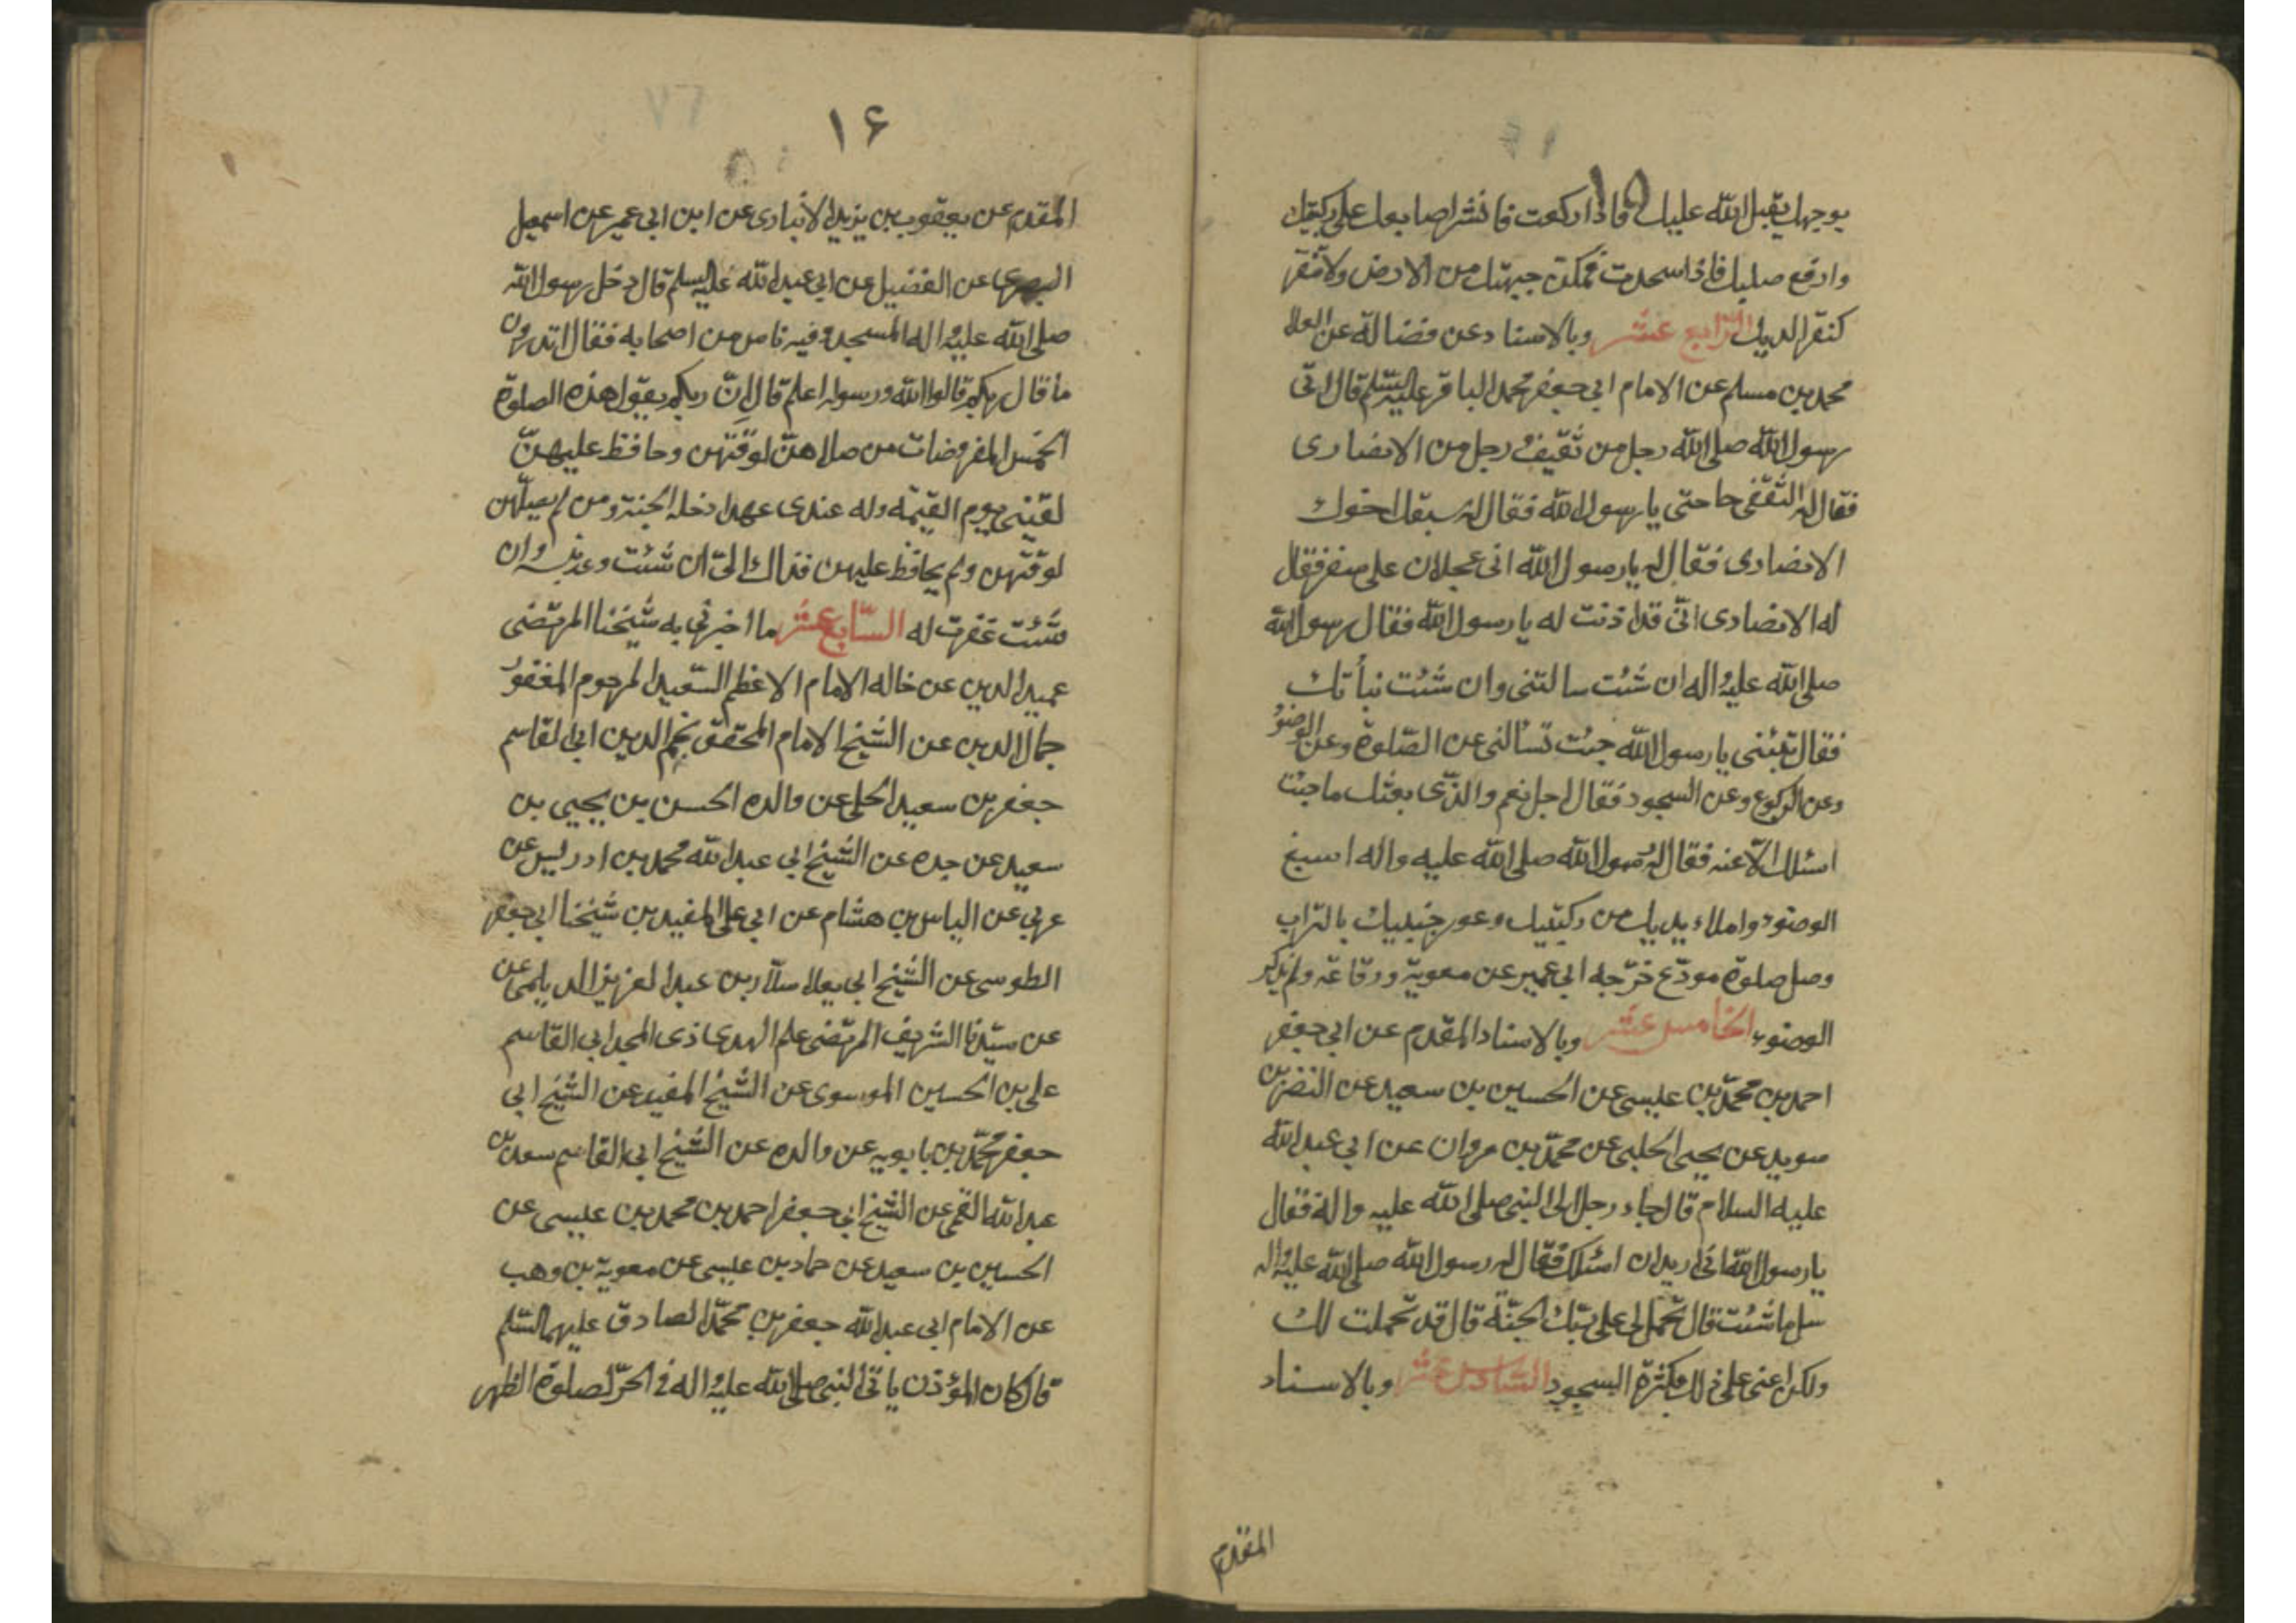 ١٥
بوجهك يقبل الله عليك فاذا ركعت فانشر اصابعك على ركبتيك
وارفع صلبك فاذا سجدت فمكن جبهتك من الارض ولا تنقر
كنقر الديك الرّابع عشر وبالاسناد عن فضالة عن العلا
محمد بن مسلم عن الامام ابى جعفر محمد الباقر عليه السّلم قال اتى
رسول الله صلى الله رجل من ثقيف رجل من الانصارى
فقال له الثقفى حاجتى يا رسول الله فقال له سبقك اخوك
الانصارى فقال له يا رسول الله انى عجلان على سفر فقال
له الانصارى انّى قد اذنت له يا رسول الله فقال رسول الله
صلى الله عليه واله ان شئت سالتنى وان شئت نبأتك
فقال نبئنى يا رسول الله جئت تسألنى عن الصّلوة وعن الوضوء
وعن الركوع وعن السجود فقال اجل نعم والذّى بعثك ما جئت
اسئلك الّا عنه فقال له رسول الله صلى الله عليه واله اسبغ
الوضوء واملاء يديك من ركبتيك وعفر جنبيك بالتراب
وصل صلوة مودّع خرّجه ابى عمير عن معوية ورفاعة ولم يذكر
الوضوء الخامس عشر وبالاسناد المقدم عن ابى جعفر
احمد بن محمّد بن عيسى عن الحسين بن سعيد عن النضر بن
سويد عن يحيى الحلبى عن محمّد بن مروان عن ابى عبد الله
عليه السلام قال جاء رجل الى النبى صلى الله عليه واله فقال
يا رسول الله انى اريد ان اسئلك فقال له رسول الله صلى الله عليه واله
سل ما شئت قال تحمل لى على ربّك الجنّة قال قد تحملت لك
ولكن اعنى على ذلك بكثرة السجود السّادس عشر وبالاسناد
المقدم
١۶
المقدم عن يعقوب بن يزيد الانبارى عن ابن ابى عمير عن اسمعيل
البصرى عن الفضيل عن ابى عبد الله عليه السلم قال دخل رسول الله
صلى الله عليه واله المسجد وفيه ناس من اصحابه فقال اتدرون
ما قال ربكم قالوا الله ورسوله اعلم قال انّ ربكم يقول هذه الصلوة
الخمس المفروضات من صلاهنّ لوقتهن وحافظ عليهنّ
لقينى يوم القيٰمة وله عندى عهد ادخله الجنة ومن لم يصلّهن
لوقتهن ولم يحافظ عليهن فذاك الىّ ان شئت وعذبته وان
شئت غفرت له السّابع عشر ما اخبرنى به شيخنا المرتضى
عميد الدين عن خاله الامام الاعظم السّعيد المرحوم المغفور
جمال الدين عن الشيخ الامام المحقق نجم الدين ابى القاسم
جعفر بن سعيد الحلى عن والده الحسن بن يحيى بن
سعيد عن جده عن الشيخ ابى عبد الله محمد بن ادريس عن
عربى عن الياس بن هشام عن ابى على المفيد بن شيخنا ابى جعفر
الطوسى عن الشيخ ابى يعلا سلّار بن عبد العزيز الديلمى عن
عن سيّدنا الشريف المرتضى علم الهدى ذى المجد ابى القاسم
على بن الحسين الموسوى عن الشيخ المفيد عن الشيخ ابى
جعفر محمّد بن بابويه عن والده عن الشيخ ابى القاسم سعد بن
عبد الله القمى عن الشيخ ابى جعفر احمد بن محمد بن عيسى عن
الحسين بن سعيد عن حماد بن عيسى عن معوية بن وهب
عن الامام ابى عبد الله جعفر بن محمّد الصادق عليهما السّلم
قال كان المؤذن ياتى النبى صلى الله عليه واله فى الحرّ لصلوة الظهر